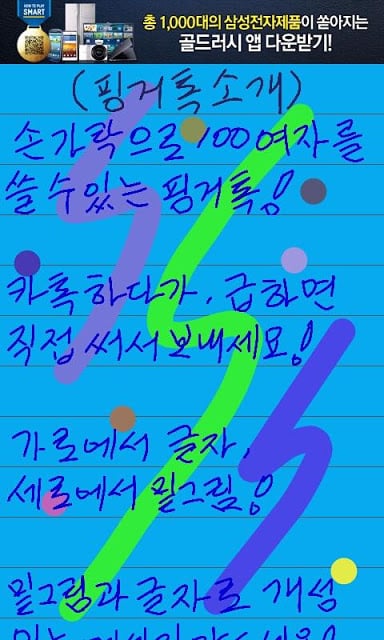 HOW TO PLAY
SMART
총 1,000대의 삼성전자제품이 쏟아지는
골드러시 앱 다운받기!
(핑거톡소개)
손가락으로 100여자를
쓸 수 있는 핑거톡!
카톡하다가, 급하면
직접 써서 보내세요!
가로에서 글자,
세로에서 밑그림!
밑그림과 글자로 개성